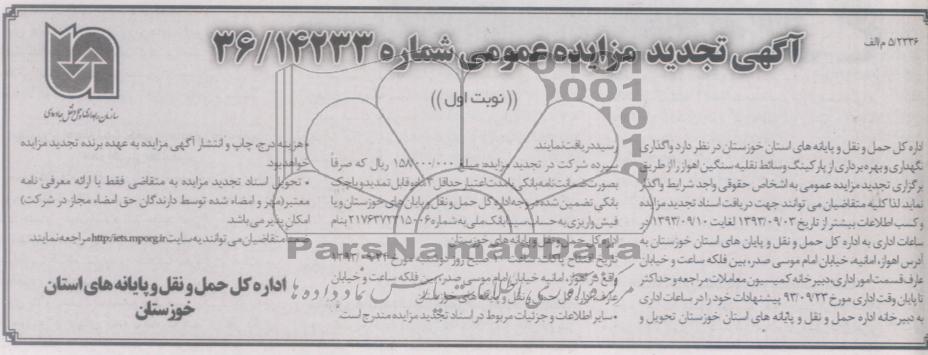 ۵/۲۳۳۶ م/الف
آگهی تجدید مزایده عمومی شماره ۳۶/۱۴۲۳۳
((نوبت اول))
اداره کل حمل و نقل و پایانه های استان خوزستان در نظر دارد واگذاری
نگهداری و بهره برداری از پارکینگ وسائط نقلیه سنگین اهواز را از طریق
برگزاری تجدید مزایده عمومی به اشخاص حقوقی واجد شرایط واگذار
نماید لذا کلیه متقاضیان می توانند جهت دریافت اسناد تجدید مزایده
و کسب اطلاعات بیشتر از تاریخ ۱۳۹۳/۰۹/۰۳ لغایت ۱۳۹۳/۰۹/۱۰ در
ساعات اداری به اداره کل حمل و نقل و پایان های استان خوزستان به
آدرس اهواز، امانیه، خیابان امام موسی صدر، بین فلکه ساعت و خیابان
عارف قسمت امور اداری، دبیرخانه کمیسیون معاملات مراجعه و حداکثر
تا پایان وقت اداری مورخ ۹۳/۰۹/۲۳ پیشنهادات خود را در ساعات اداری
به دبیرخانه اداره حمل و نقل و پایانه های استان خوزستان تحویل و
رسید دریافت نمایند.
سپرده شرکت در تجدید مزایده: مبلغ ۱۵۸/۰۰۰/۰۰۰ ریال که صرفاً
بصورت ضمانت نامه بانکی با مدت اعتبار حداقل ۳ ماه و قابل تمدید و یا چک
بانکی تضمین شده در وجه اداره کل حمل و نقل و پایان های خوزستان و یا
فیش واریزی به حساب بانک ملی به شماره ۲۱۷۶۳۷۲۳۱۵۰۰۶ بنام
اداره کل حمل و نقل و پایانه های خوزستان
تاریخ افتتاح پاکات: ساعت ۱۰ صبح روز
واقع در اهواز، امانیه، خیابان امام موسی صدر، بین فلکه ساعت و خیابان
عارف، اداره کل حمل و نقل و پایانه های خوزستان
•سایر اطلاعات و جزئیات مربوط در اسناد تجدید مزایده مندرج است.
•هزینه درج، چاپ و انتشار آگهی مزایده به عهده برنده تجدید مزایده
خواهد بود.
• تحویل اسناد تجدید مزایده به متقاضی فقط با ارائه معرفی نامه
معتبر (مهر و امضاء شده توسط دارندگان حق امضاء مجاز در شرکت)
امکان پذیر می باشد.
متقاضیان می توانند به سایت http:/iets.mporg.ir مراجعه نمایند.
اداره کل حمل و نقل و پایانه های استان
خوزستان
سازمان راهداری و حمل و نقل جاده ای
ParsNamadData